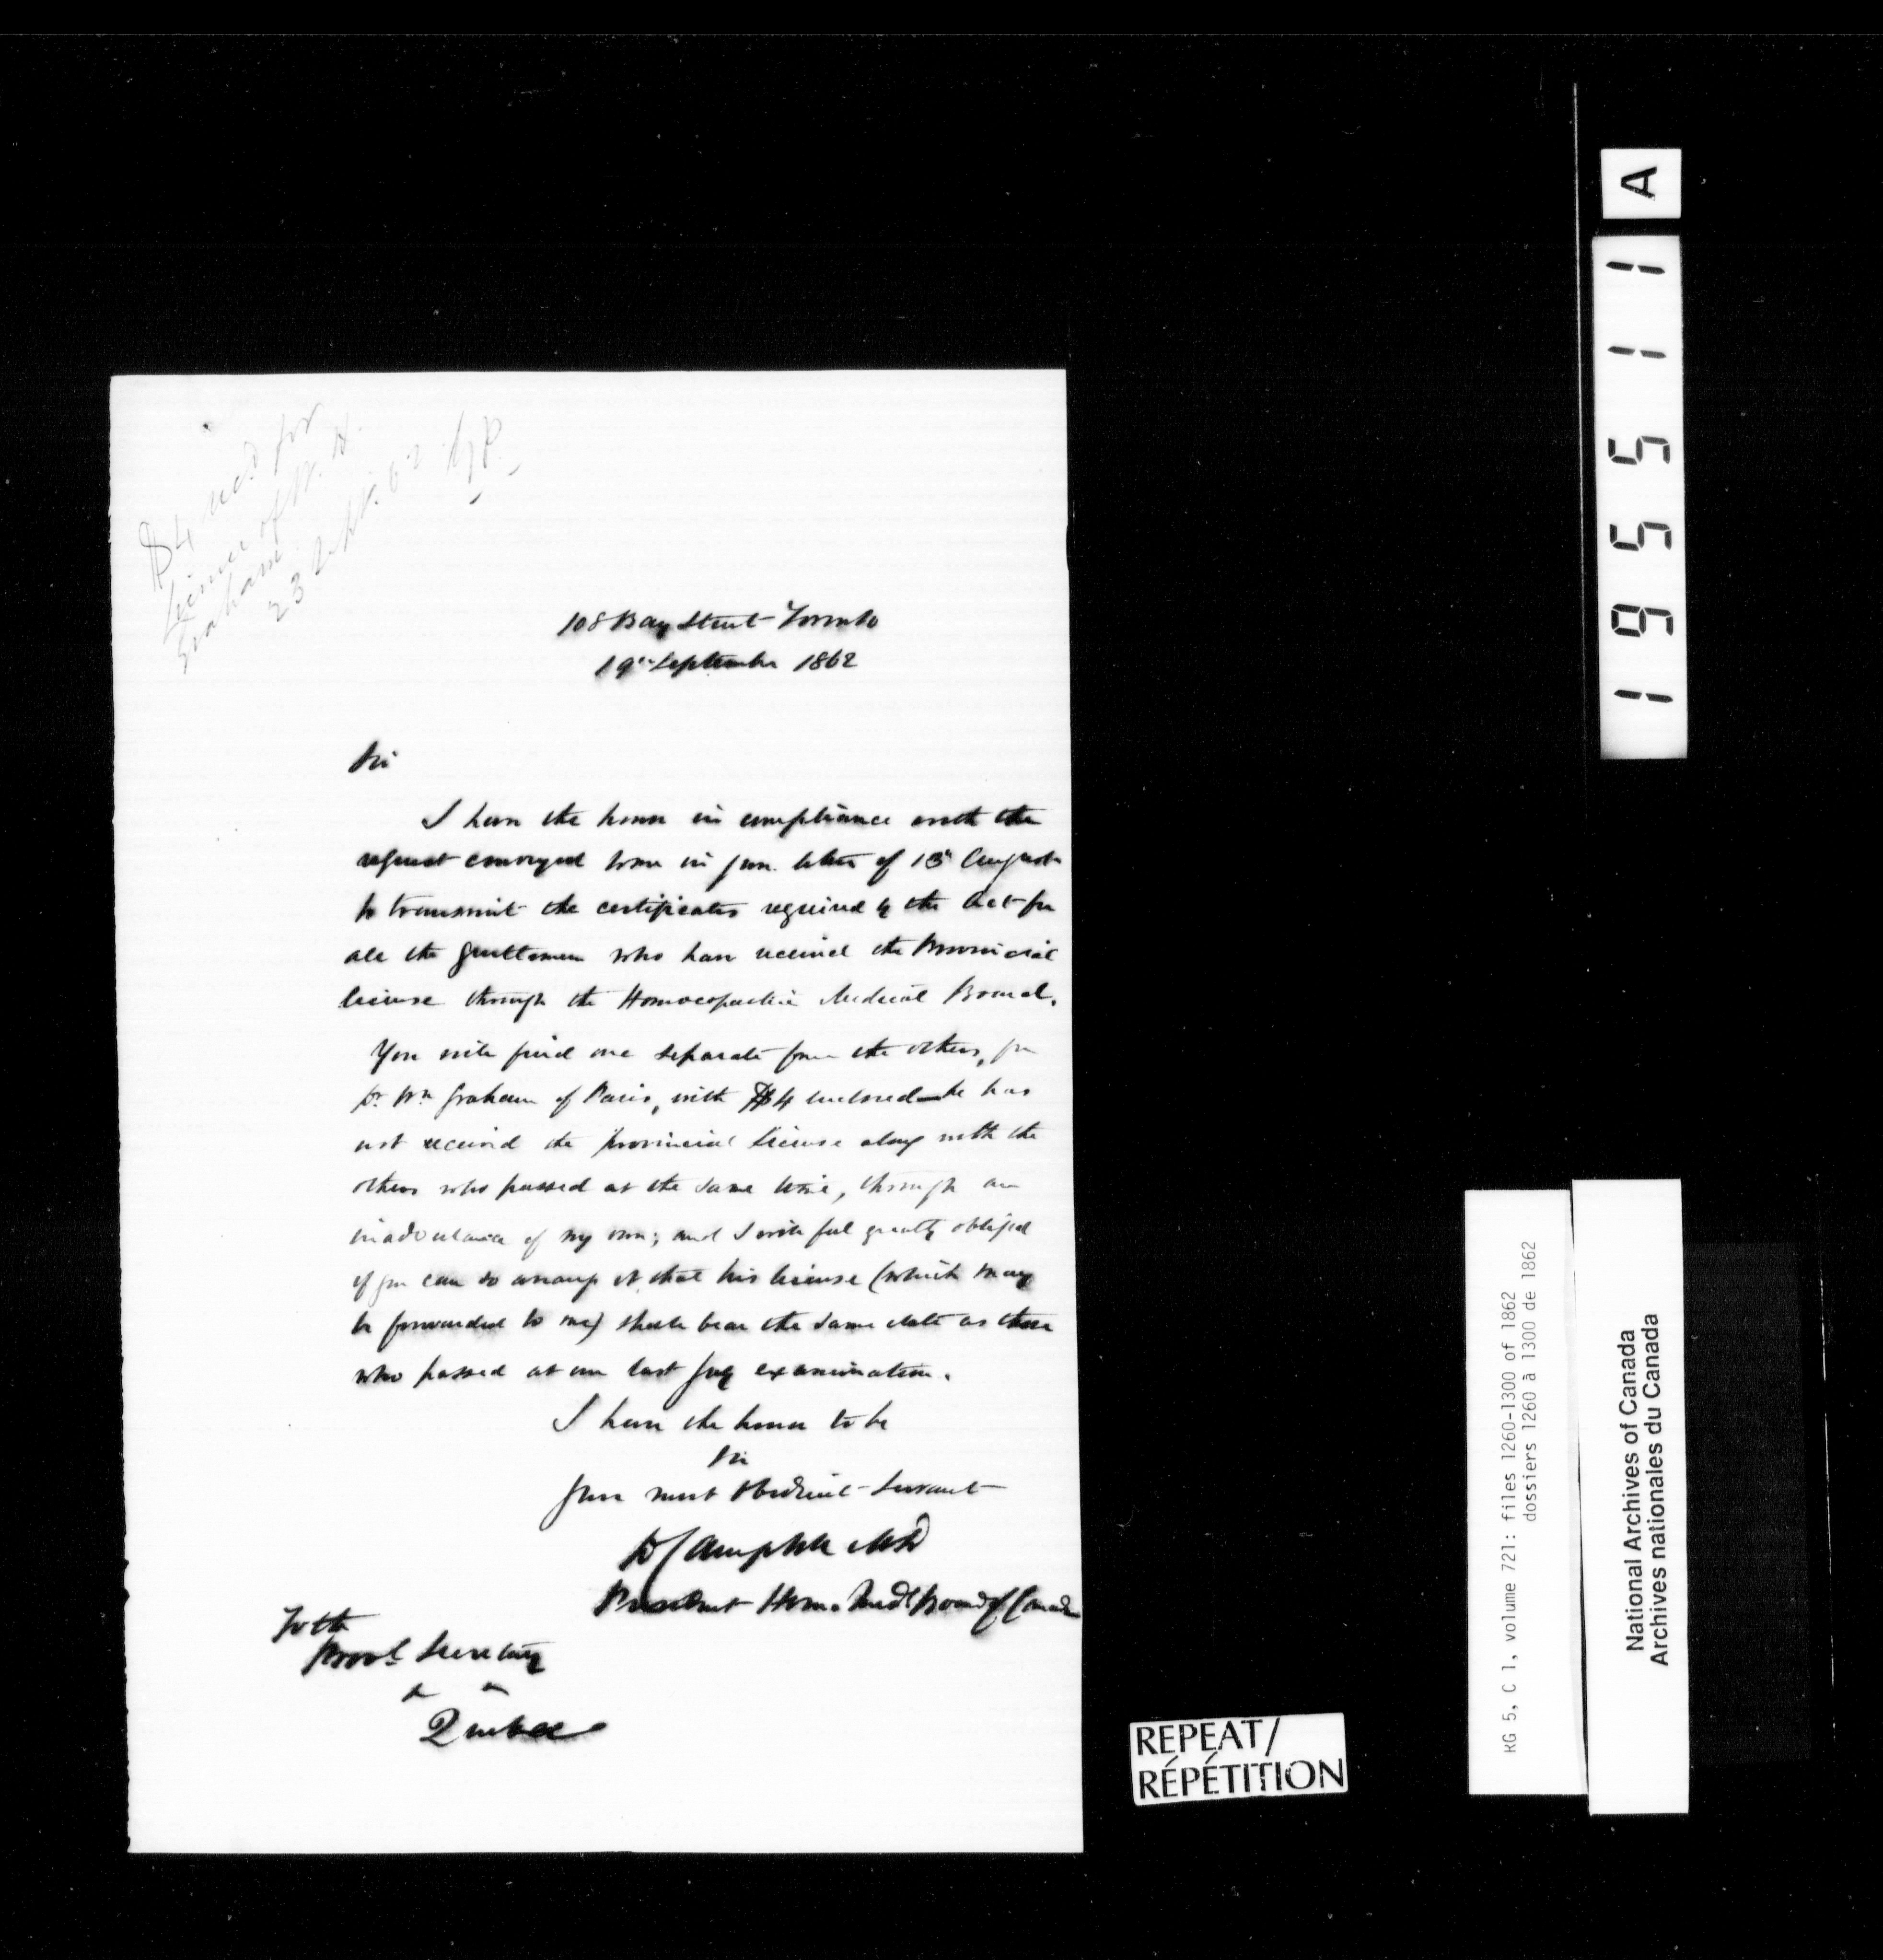 $4 recd for
License of W. H.
Graham
23 Sept. 62
108 Bay Street Toronto
19th September 1862
Sir
I have the honor in compliance with the
request conveyed to me in your letter of 13th August
to transmit the certificates required by the Act for
all the gentlemen who have received the Provincial
license through the Homoeopathic Medical Board.
You will find one separate from the others, for
Dr. Wm Graham of Paris, with $4 enclosed—he has
not received the provincial License along with the
others who passed at the same time, through an
inadvertance of my own; and I will feel greatly obliged
if you can so arrange it that his license (which may
be forwarded to me) shall bear the same date as those
who passed at our last July examination.
I have the honor to be
Sir
Your most Obedient Servant
D Campbell MD
President Homo. Medl Board of Canada
To the
Provl Secretary
Quebec
A
195511
RG 5, C 1, volume 721: files 1260-1300 of 1862
dossiers 1260 à 1300 de 1862
National Archives of Canada
Archives nationales du Canada
REPEAT/
RÉPÉTITION